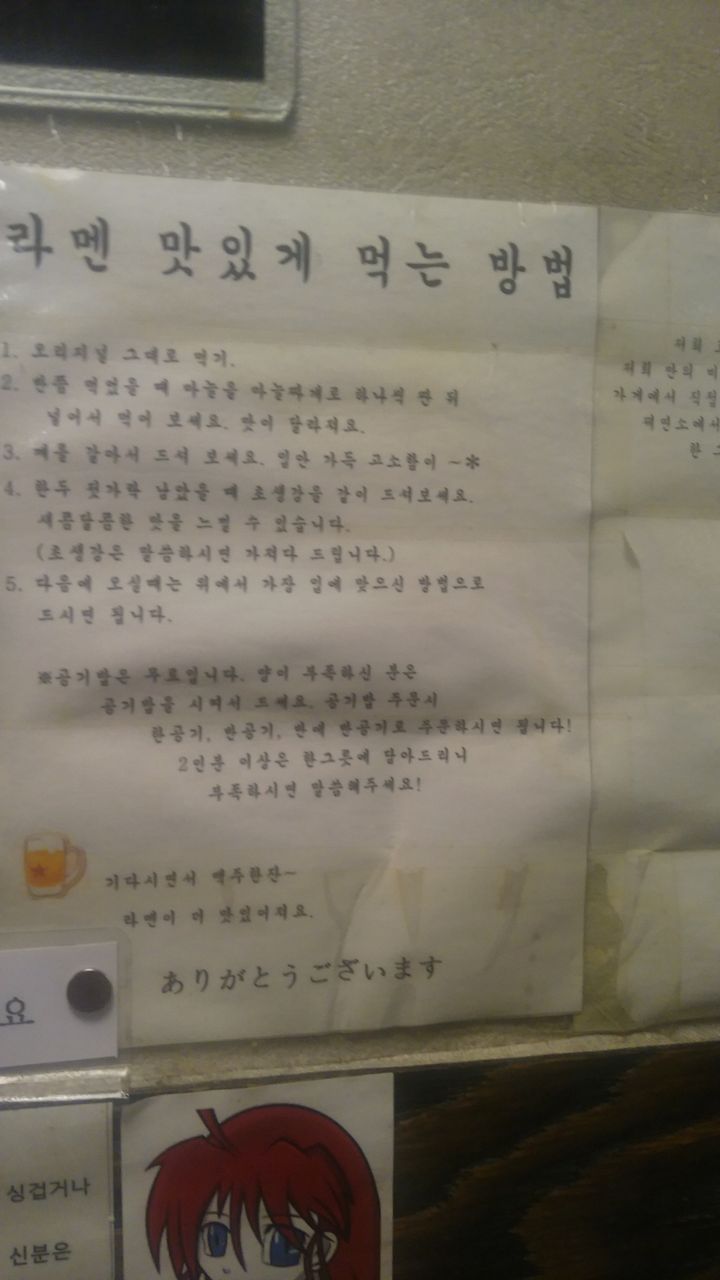 라멘 맛있게 먹는 방법
1. 오리지널 그대로 먹기.
2. 반쯤 먹었을 때 마늘을 마늘짜개로 하나씩 짠 뒤
넣어서 먹어 보세요. 맛이 달라져요.
3. 깨를 갈아서 드셔 보세요. 입안 가득 고소함이 ~*
4. 한두 젓가락 남았을 때 초생강을 같이 드셔보세요.
새콤달콤한 맛을 느낄 수 있습니다.
(초생강은 말씀하시면 가져다 드립니다.)
5. 다음에 오실때는 위에서 가장 입에 맞으신 방법으로
드시면 됩니다.
※공기밥은 무료입니다. 양이 부족하신 분은
공기밥을 시켜서 드세요. 공기밥 주문시
한공기, 반공기, 반에 반공기로 주문하시면 됩니다!
2인분 이상은 한그릇에 담아드리니
부족하시면 말씀해주세요!
기다시면서 맥주한잔~
라멘이 더 맛있어져요.
ありがとうございます
저희
저희 만의
가게에서 직접
제면소에서
한 그
요
싱겁거나
신분은